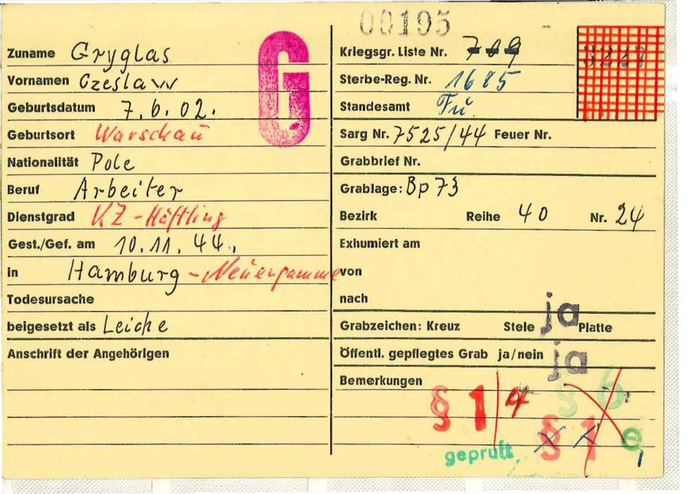 00195
Zuname Gryglas
G
Vornamen Czeslaw
Geburtsdatum 7.6.02.
Geburtsort Warschau
Nationalität Pole
Beruf Arbeiter
Dienstgrad KZ-Häftling
Gest./Gef. am 10.11.44.
in Hamburg-Neuengamme
Todesursache
beigesetzt als Leiche
Anschrift der Angehörigen
Kriegsgr. Liste Nr.
Sterbe-Reg. Nr. 1685
Standesamt Fu.
Sarg Nr. 7525/44 Feuer Nr.
Grabbrief Nr.
Grablage: Bp 73
Bezirk Reihe 40 Nr. 24
Exhumiert am
von
nach
Grabzeichen: Kreuz Stele ja Platte
Öffentl. gepflegtes Grab ja/nein ja
Bemerkungen
§ 1/4 § b
geprüft § 1 e